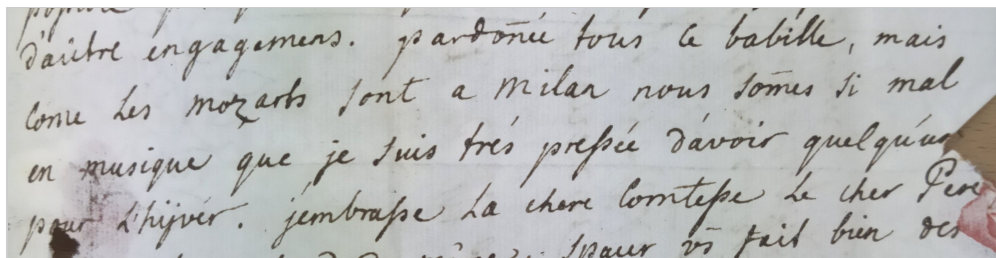 d'autre engagemens. pardon̄ée tous ce babille, mais
come les mozarts sont a milan nous som̄es si mal
en musique que je suis trés pressée d'avoir quelqu'un
pour l'hijvér. j'embrasse la chere Comtesse le cher Pere
spaur vs̄ fait bien des